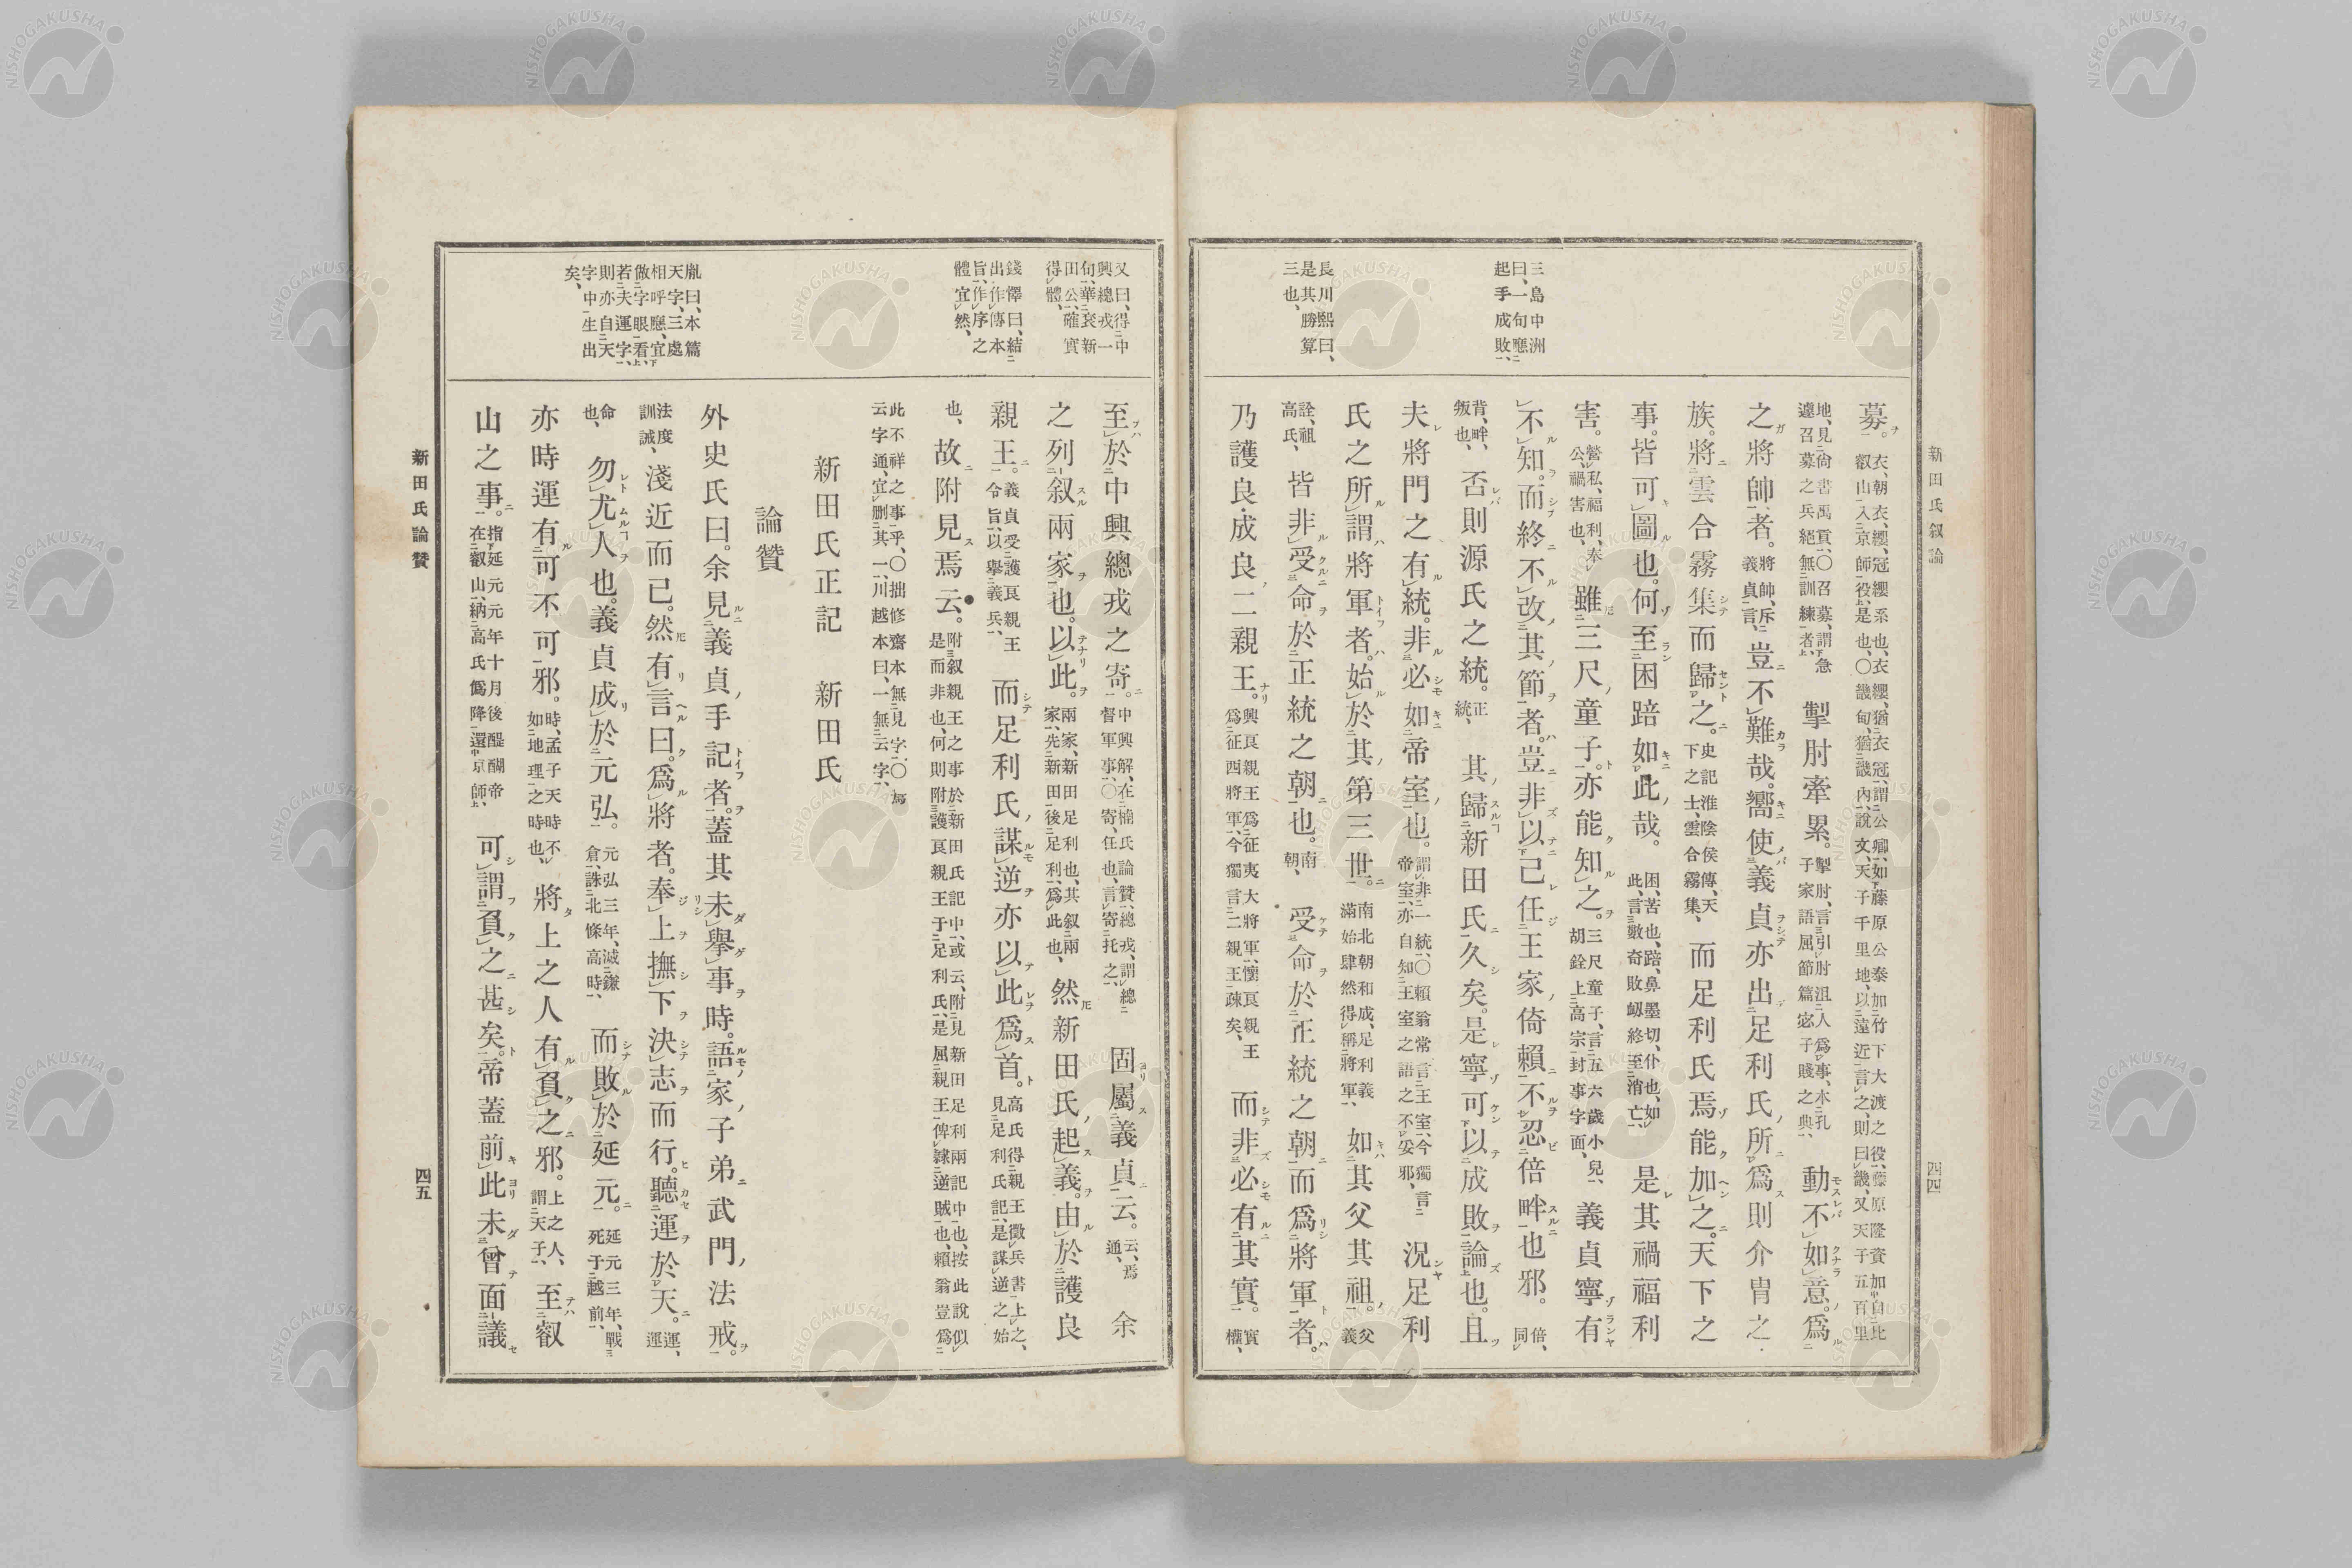 新田氏叙論
四四
三島中洲
曰、一句應
起手成敗、
長川熙曰、
是其勝算
三也、
募。衣、朝衣、纓、冠纓系也、衣纓、猶衣冠、謂公卿、如藤原公泰加竹下大渡之役、藤原隆資加自北
叡山入京師役是也、〇畿甸、猶畿內、說文、天子千里地、以遠近言之、則曰畿、又天子五百里
地、見尙書禹貢、〇召募、謂急
遽召募之兵絕無訓練者、掣肘牽累。掣肘、言引肘沮人爲事、本孔
子家語屈節篇宓子賤之典、動不如意。爲
之將帥者。將帥、斥
義貞言、豈不難哉。嚮使義貞亦出足利氏所爲則介冑之
族。將雲合霧集而歸之。史記淮陰侯傳、天
下之士、雲合霧集、而足利氏焉能加之。天下之
事。皆可圖也。何至困踣如此哉。困、苦也、踣、鼻墨切、仆也、如
此、言數奇敗衂終至消亡、是其禍福利
害。營私、福利、奉
公、禍害也、雖三尺童子。亦能知之。三尺童子、言五六歲小兒、
胡銓上高宗封事字面、義貞寧有
不知。而終不改其節者。豈非以己任王家倚賴不忍倍畔也邪。倍、
同
背、畔、
叛也、否則源氏之統。正
統、其歸新田氏久矣。是寧可以成敗論也。且
夫將門之有統。非必如帝室也。謂非一統、〇賴翁常言王室、今獨言
帝室、亦自知王室之語之不妥邪、況足利
氏之所謂將軍者。始於其第三世。南北朝和成、足利義
滿始肆然得稱將軍、如其父其祖。父
義
詮、祖
高氏、皆非受命於正統之朝也。南
朝、受命於正統之朝而爲將軍者。
乃護良・成良二親王。興良親王爲征夷大將軍、懷良親王
爲征西將軍、今獨言二親王、疎矣、而非必有其實。實
權、
又曰、得中
興總戎一
句、華袞新
田公、確實
得體、
錢懌曰、結
出作傳本
旨、作序之
體宜然、
胤曰、本篇
天字、三處
相呼應、宜
做字眼看、
若夫運字、
則亦自天
字中生出
矣、
至於中興總戎之寄。中興解、在楠氏論贊、總戎、謂總
督軍事、〇寄、任也、言寄托之、固屬義貞云。云、焉
通、余
之列叙兩家也。以此。兩家、新田足利也、其叙兩
家、先新田後足利、爲此也、然新田氏起義。由於護良
親王。義貞受護良親王
令旨、以擧義兵、而足利氏謀逆亦以此爲首。高氏得親王徵兵書上之、
見足利氏記、是謀逆之始
也、故附見焉云。附叙親王之事於新田氏記中、或云、附見新田足利兩記中也、按此說似
是而非也、何則附護良親王于足利氏、是屈親王俾隸逆賊也、賴翁豈爲
此不祥之事乎、〇拙修齋本無見字、〇焉
云字通、宜刪其一、川越本曰、一無云字、
新田氏正記　新田氏
論贊
外史氏曰。余見義貞手記者。蓋其未擧事時。語家子弟武門法戒。
法度
訓誡、淺近而已。然有言曰。爲將者。奉上撫下決志而行。聽運於天。運、
運
命
也、勿尤人也。義貞成於元弘。元弘三年、滅鎌
倉、誅北條高時、而敗於延元。延元三年、戰
死于越前、
亦時運有可不可邪。時、孟子天時不
如地理之時也、將上之人有負之邪。上之人、
謂天子、至叡
山之事。指延元元年十月後醍醐帝
在叡山、納高氏僞降還京師、可謂負之甚矣。帝蓋前此未曾面議
新田氏論贊
四五